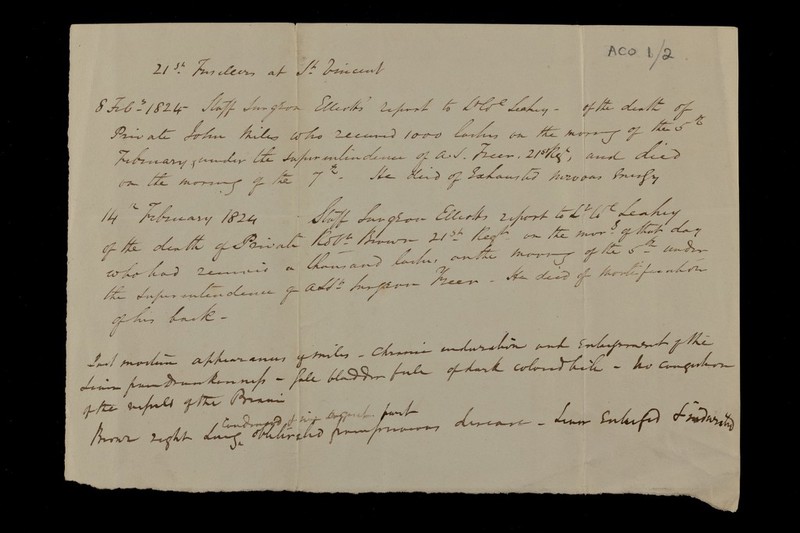 ACO 1/2
21st Fusileers at St Vincent
8 Feby 1824 - Staff Surgeon Elliott's report to Lt Col Leahey - of the death of
Private John Miles who received 1000 lashes on the morng of the 5th
February, under the superintendence of A.S. Freer. 21st Regt, and died
on the morning of the 7th - He died of Exhausted nervous Energy
14th February 1824 - Staff Surgeon Elliotts report to Lt Col Leahey
of the death of Private Robt Brown 21st Regt on the morng of that day
who had received a thousand lashes on the morning of the 5th under
the superintendence of Asst Surgeon Freer - He died of mortification
of his back -
Post mortem appearances of Miles - Chronic induration and Enlargement of the
Liver from Drunkenness - Gale bladder full of dark colored bile - No congestion
of the vessels of the Brain
Condensed part
Brown right Lung obliterated from previous disease - Liver Enlarged & indurated